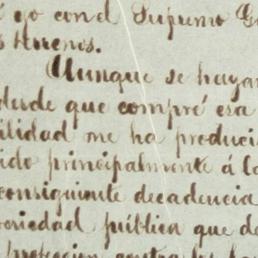 yo con el Supremo G
s terrenos.
Aunque se hayan
desde que compré esa
ilidad me ha produci
ido principalmente á la
consiguiente decadencia
oriedad pública que de